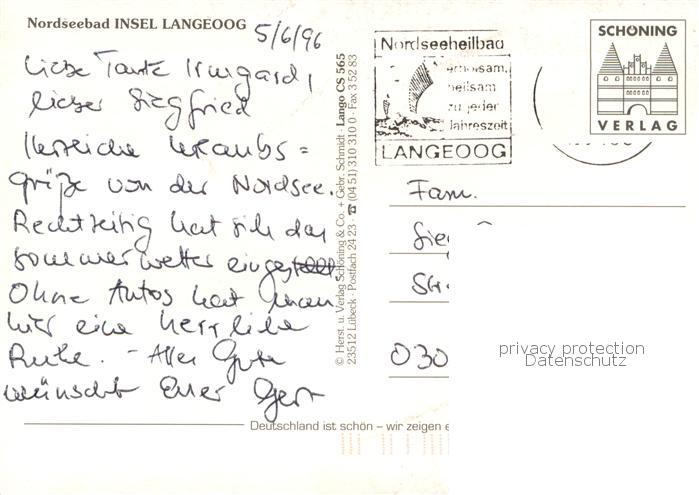 Nordseebad INSEL LANGEOOG
5/6/96
Liebe Tante Irmgard,
lieber Siegfried
Herzliche Urlaubs=
grüße von der Nordsee.
Rechtzeitig hat sich das
Sommerwetter eingestellt
Ohne Autos hat man
hier eine herrliche
Ruhe. - Alles Gute
wünscht Euer Gert
© Herst. u. Verlag Schöning & Co. + Gebr. Schmidt · Lango CS 565
23512 Lübeck · Postfach 24 23 · ☎ (04 51) 310 310 0 · Fax 3 52 83
Nordseeheilbad
erholsam,
heilsam
zu jeder
Jahreszeit
LANGEOOG
SCHÖNING
VERLAG
Fam.
Sie
Str
030
privacy protection
Datenschutz
Deutschland ist schön – wir zeigen e